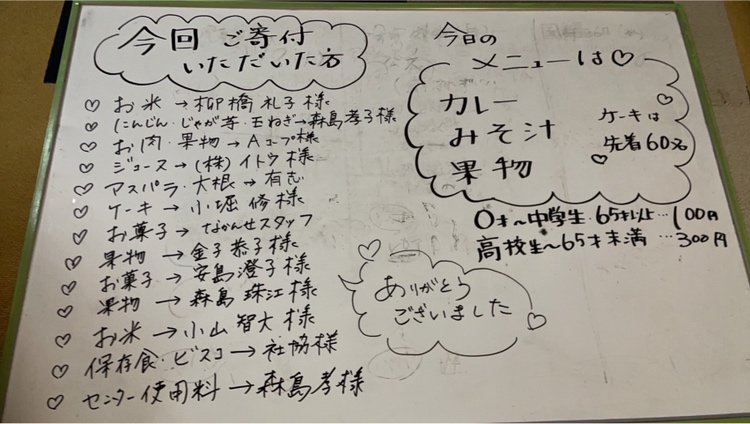 今回ご寄付
いただいた方
♡ お米→柳橋礼子様
♡ にんじん・じゃが芋・玉ねぎ→森島孝子様
♡ お肉・果物→Aコープ様
♡ ジュース→(株)イトウ様
♡ アスパラ・大根→有志
♡ ケーキ→小堀修様
♡ お菓子→なかんせスタッフ
♡ 果物→金子恭子様
♡ お菓子→安島澄子様
♡ 果物→森島珠江様
♡ お米→小山智大様
♡ 保存食・ビスコ→社協様
♡ センター使用料→森島孝様
今日の
メニューは♡
カレー
みそ汁
果物
ケーキは
先着60名
♡
0才〜中学生・65才以上…100円
高校生〜65才未満…300円
ありがとう
ございました